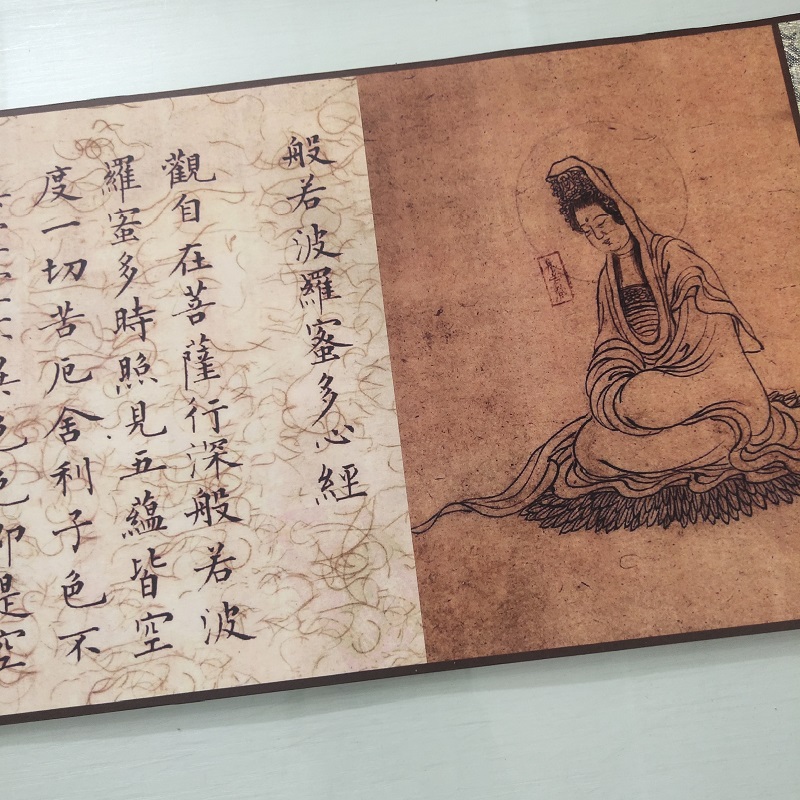 般若波羅蜜多心經
觀自在菩薩行深般若波
羅蜜多時照見五蘊皆空
度一切苦厄舍利子色不
異色色即是空